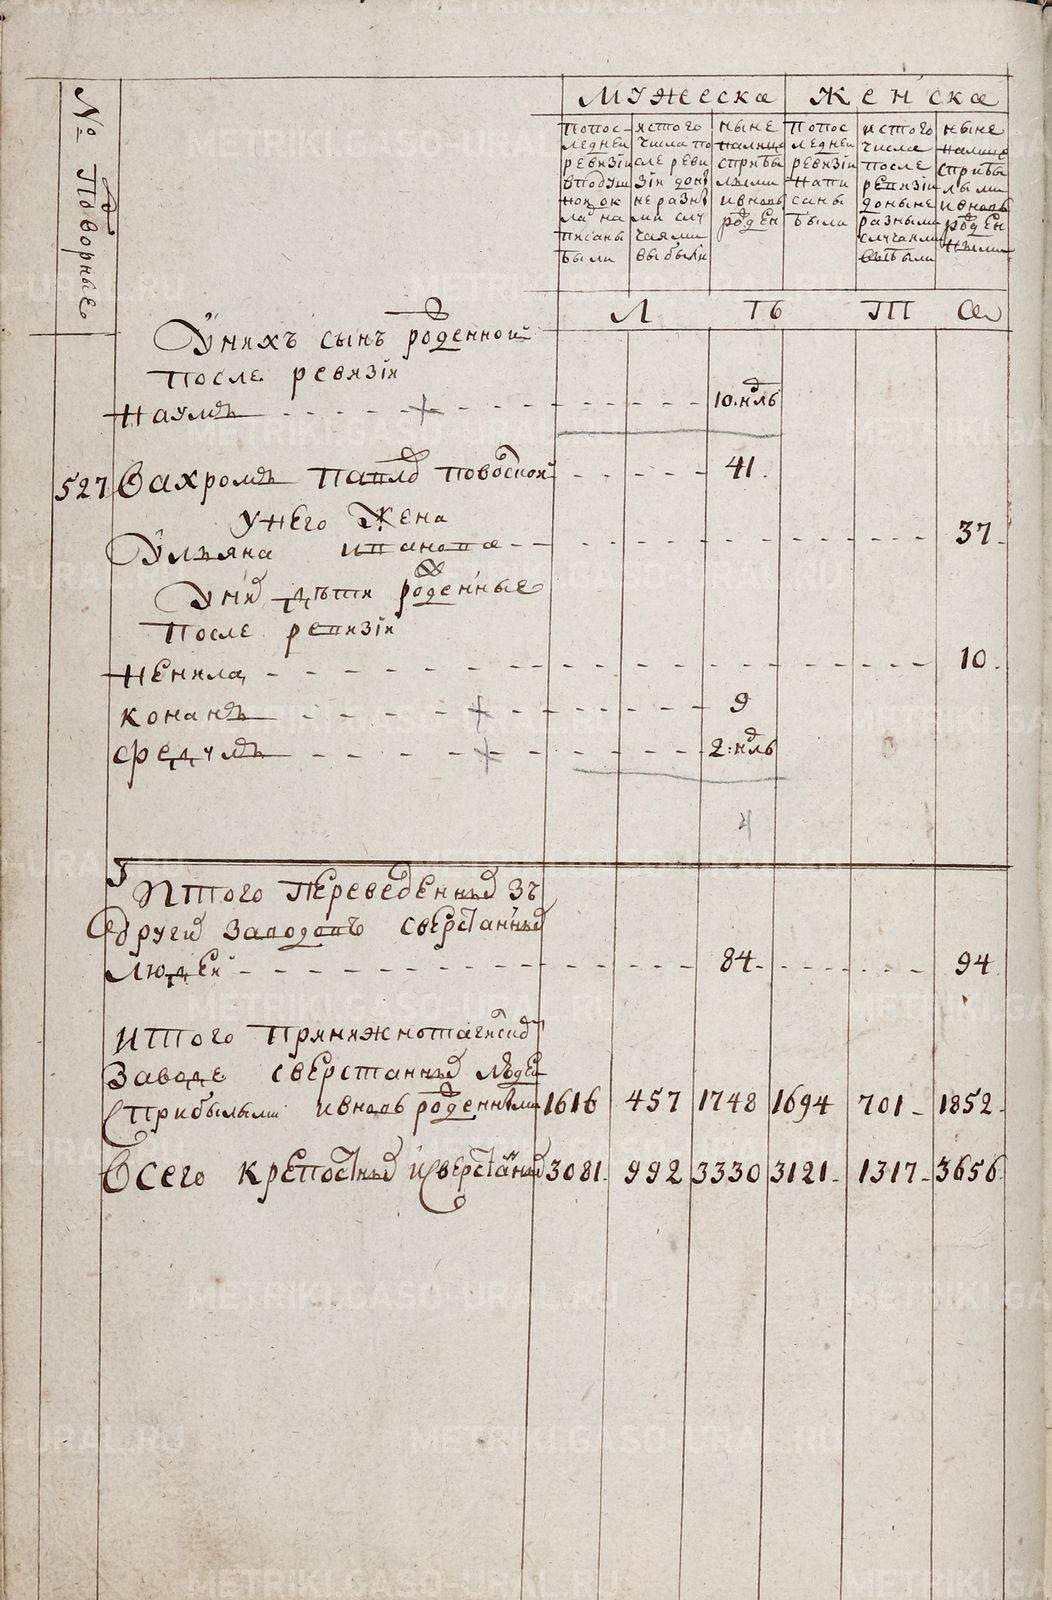 № Подворные
Мужеска
Женска
По последней ревизии в подушной оклад написаны были
ис того числа после ревизии до ныне разными случаями выбыли
Ныне на лицо с прибылыми и вновь рожден
По последней ревизии написаны были
ис того числа после ревизии доныне разными случаями выбыли
ныне на лицо с прибылыми и вновь рожденными
Лѣта
У нихъ сынъ рожденной
после ревизiи
Наумъ 10. нѣль
527 Вахромѣ
41.
У него жена
Ульяна Иванова 37.
У них дѣти рожденные
после ревизiи
Ненила 10.
Конанъ 9
2. нѣль
4
Итого переведенных зъ
других заводовъ сверстанных
людей 84. 94
Итого при Нижнотагилском
заводе сверстанных людей
с прибылыми и вновь рожденными 1616 457 1748 1694 701 1852.
Всего крепостных и сверстанных 3081. 992 3330 3121. 1317 3656
METRIKI.GASO-URAL.RU